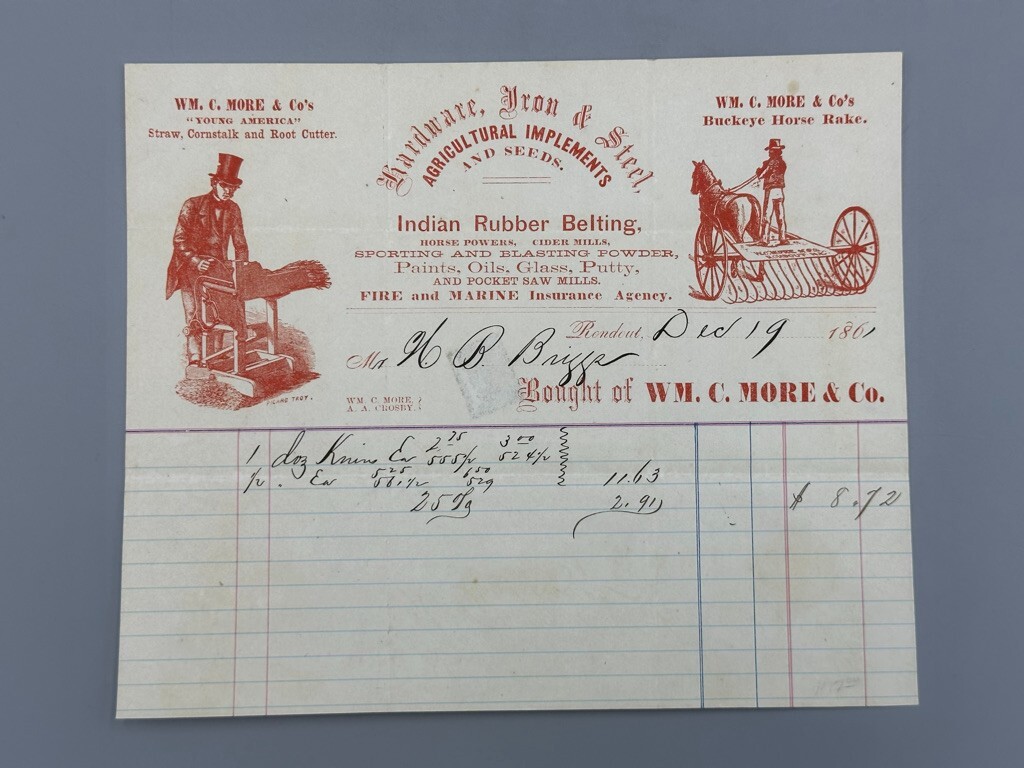 WM. C. MORE & Co's
"YOUNG AMERICA"
Straw, Cornstalk and Root Cutter.
Hardware, Iron & Steel,
AGRICULTURAL IMPLEMENTS
AND SEEDS.
Indian Rubber Belting,
HORSE POWERS, CIDER MILLS,
SPORTING AND BLASTING POWDER,
Paints, Oils, Glass, Putty,
AND POCKET SAW MILLS.
FIRE and MARINE Insurance Agency.
WM. C. MORE & Co's
Buckeye Horse Rake.
Rondout, Dec 19 1861
Mr B. Briggs
WM. C. MORE,
A. A. CROSBY.
Bought of WM. C. MORE & Co.
1 doz Ea 2.75 555½ 3.00 524½
½ . Ea 5.25 561½ 1.50 529 11.63
25 2.91 $ 8.72